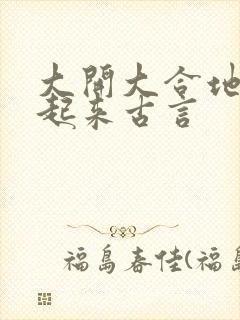 大開大合地
起来古言
福島春佳(福島